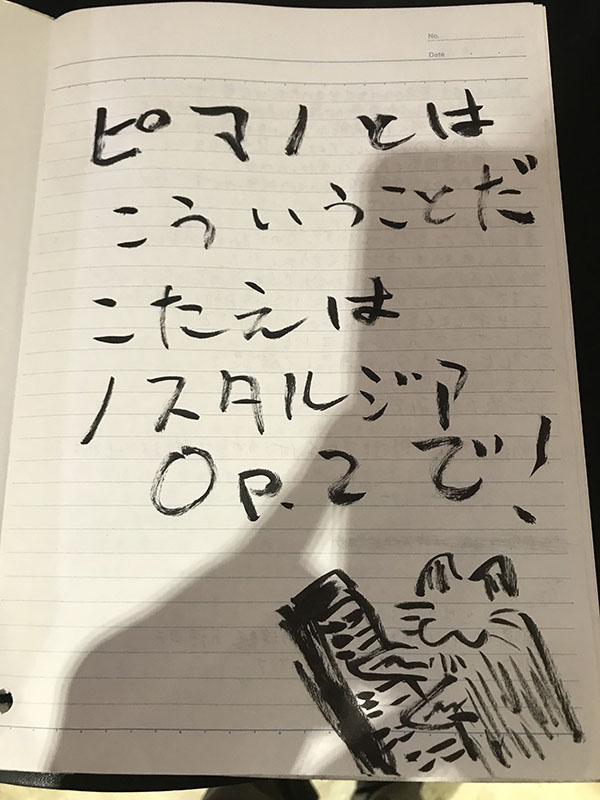 No.
Date
ピアノとは
こういうことだ
こたえは
ノスタルジア
Op.2で!